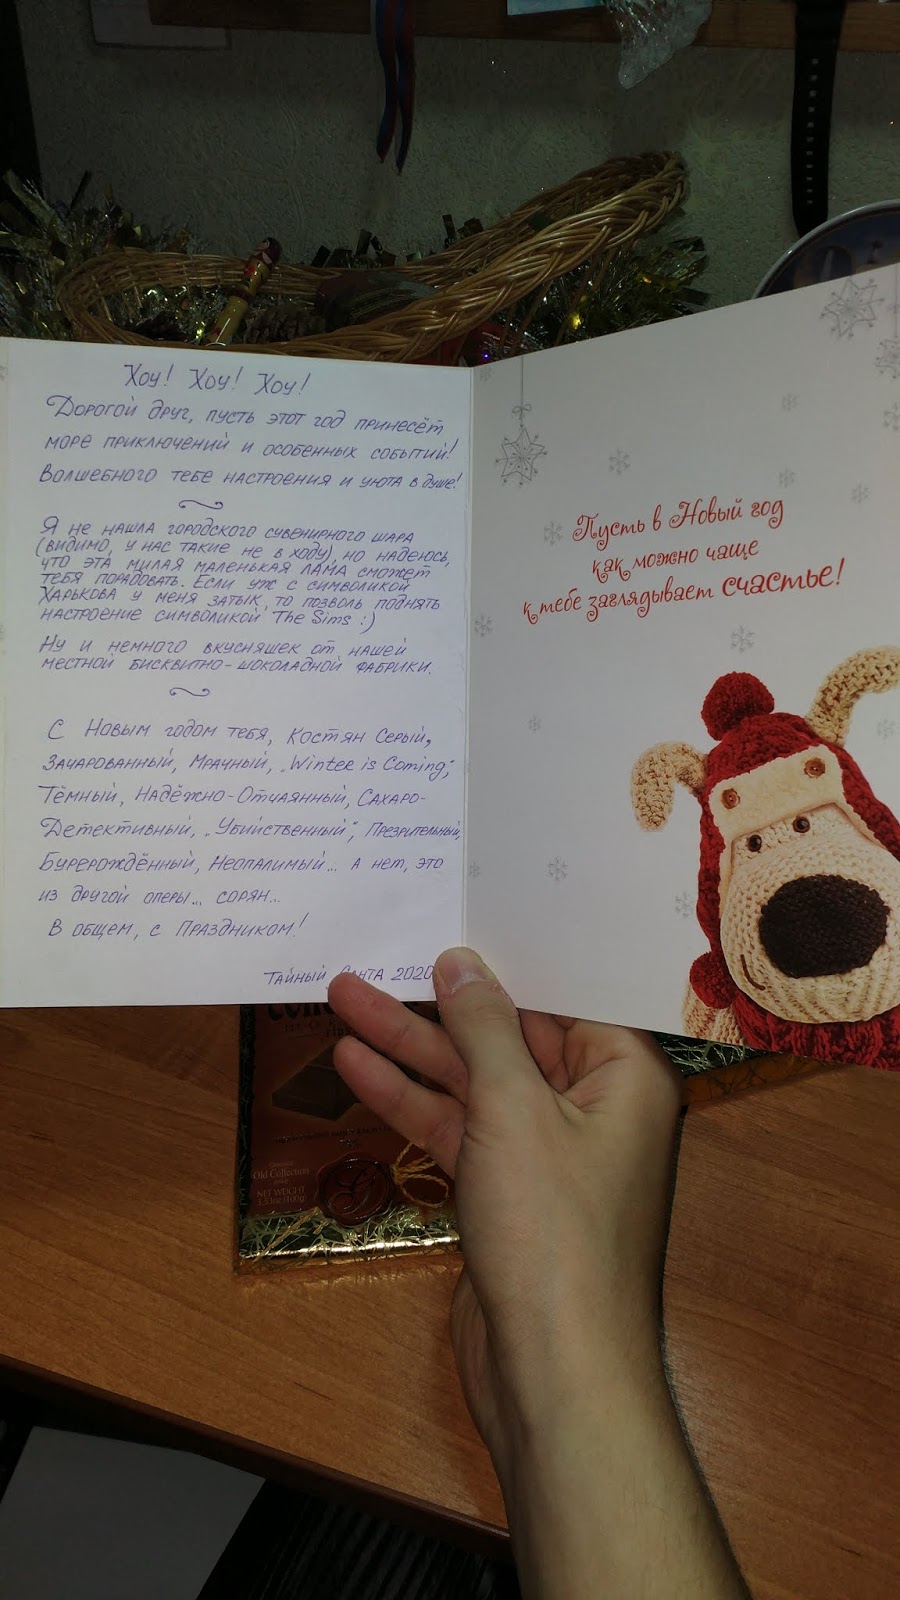 Хоу! Хоу! Хоу!
Дорогой друг, пусть этот год принесёт
море приключений и особенных событий!
Волшебного тебе настроения и уюта в душе!
Я не нашла городского сувенирного шара
(видимо, у нас такие не в ходу), но надеюсь,
что эта милая маленькая лама сможет
тебя порадовать. Если уж с символикой
Харькова у меня затык, то позволь поднять
настроение символикой The Sims :)
Ну и немного вкусняшек от нашей
местной бисквитно-шоколадной фабрики.
С Новым годом тебя, Костян Серый,
Зачарованный, Мрачный, „Winter is Coming",
Тёмный, Надёжно-Отчаянный, Сахаро-
Детективный, „Убийственный", Презрительный,
Бурерождённый, Неопалимый... а нет, это
из другой оперы... сорян...
В общем, с Праздником!
Тайный Санта 2020
Пусть в Новый год
как можно чаще
к тебе заглядывает счастье!
Old Collection
NET WEIGHT